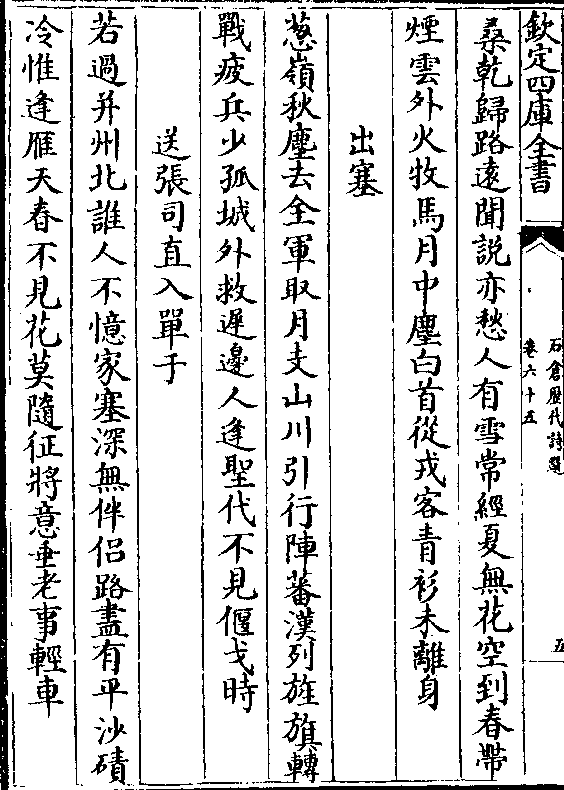 欽定四庫全書
石倉歷代詩選
卷六十五
五
桑乾歸路遠聞説亦愁人有雪常經夏無花空到春帶
煙雲外火牧馬月中塵白首從戎客青衫未離身
出塞
葱嶺秋塵去全軍取月支山川引行陣蕃漢列旌旗轉
戰疲兵少孤城外救遲邊人逢聖代不見偃戈時
送張司直入單于
若過并州北誰人不憶家塞深無伴侣路盡有平沙磧
冷惟逢雁天春不見花莫隨征將意垂老事輕車